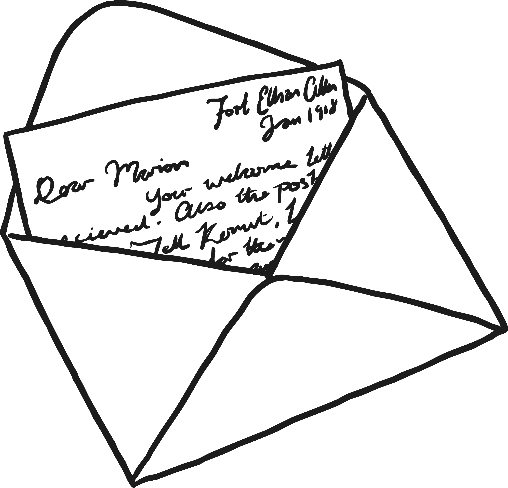 Fort Ethan Allen
Jan 1918
Dear Marion
Your welcome lett
recieved. Also the post
Tell Kermit, I
for the